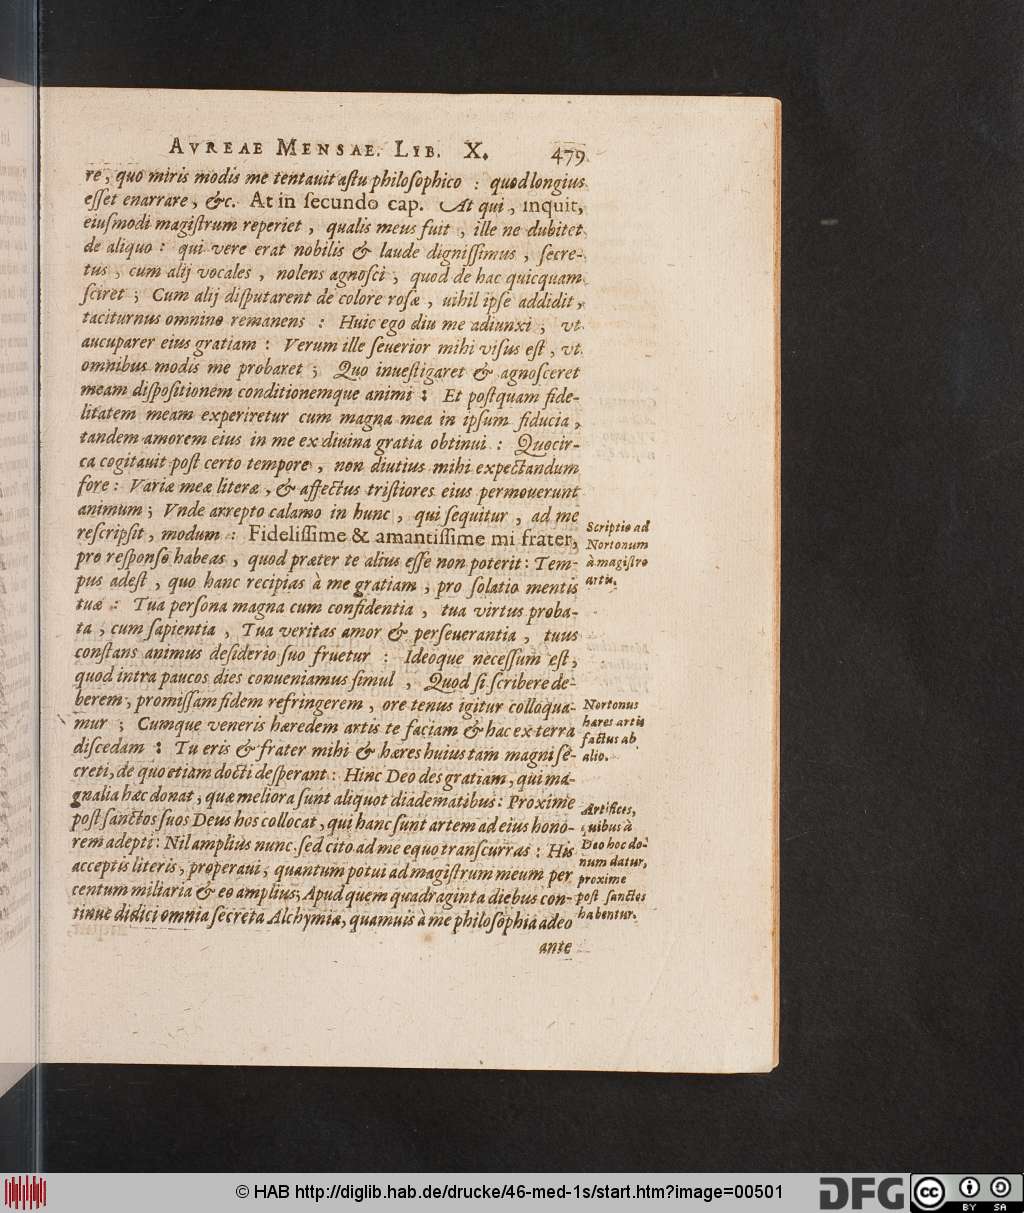 AVREAE MENSAE. LIB. X. 479
re, quo miris modis me tentauit astu philosophico : quod longius
esset enarrare, &c. At in secundo cap. At qui, inquit,
eiusmodi magistrum reperiet, qualis meus fuit, ille ne dubitet
de aliquo : qui vere erat nobilis & laude dignissimus, secre-
tus, cum alij vocales, nolens agnosci, quod de hac quicquam
sciret ; Cum alij disputarent de colore rosæ, uihil ipse addidit,
taciturnus omnino remanens : Huic ego diu me adiunxi, vt
aucuparer eius gratiam : Verum ille seuerior mihi visus est, vt
omnibus modis me probaret ; Quo inuestigaret & agnosceret
meam dispositionem conditionemque animi : Et postquam fide-
litatem meam experiretur cum magna mea in ipsum fiducia,
tandem amorem eius in me ex diuina gratia obtinui : Quocir-
ca cogitauit post certo tempore, non diutius mihi expectandum
fore : Variæ meæ literæ, & affectus tristiores eius permouerunt
animum ; Vnde arrepto calamo in hunc, qui sequitur, ad me
rescripsit, modum : Fidelissime & amantissime mi frater,
pro responso habeas, quod præter te alius esse non poterit : Tem-
pus adest, quo hanc recipias à me gratiam, pro solatio mentis
tuæ : Tua persona magna cum confidentia, tua virtus proba-
ta, cum sapientia, Tua veritas amor & perseuerantia, tuus
constans animus desiderio suo fruetur : Ideoque necessum est,
quod intra paucos dies conueniamus simul, Quod si scribere de-
berem, promissam fidem refringerem, ore tenus igitur colloqua-
mur ; Cumque veneris hæredem artis te faciam & hac ex terra
discedam : Tu eris & frater mihi & hæres huius tam magni se-
creti, de quo etiam docti desperant : Hinc Deo des gratiam, qui ma-
gnalia hæc donat, quæ meliora sunt aliquot diadematibus : Proxime
post sanctos suos Deus hos collocat, qui hanc sunt artem ad eius hono-
rem adepti : Nil amplius nunc. sed cito ad me equo transcurras : His
acceptis literis, properaui, quantum potui ad magistrum meum per
centum miliaria & eo amplius; Apud quem quadraginta diebus con-
tinue didici omnia secreta Alchymiæ, quamuis à me philosophia adeo
ante
Scriptio ad
Nortonum
à magistro
artis.
Nortonus
hæres artis
factus ab
alio.
Artifices,
quibus à
Deo hoc do-
num datur,
proxime
post sanctos
habentur.
© HAB http://diglib.hab.de/drucke/46-med-1s/start.htm?image=00501
DFG
cc BY SA